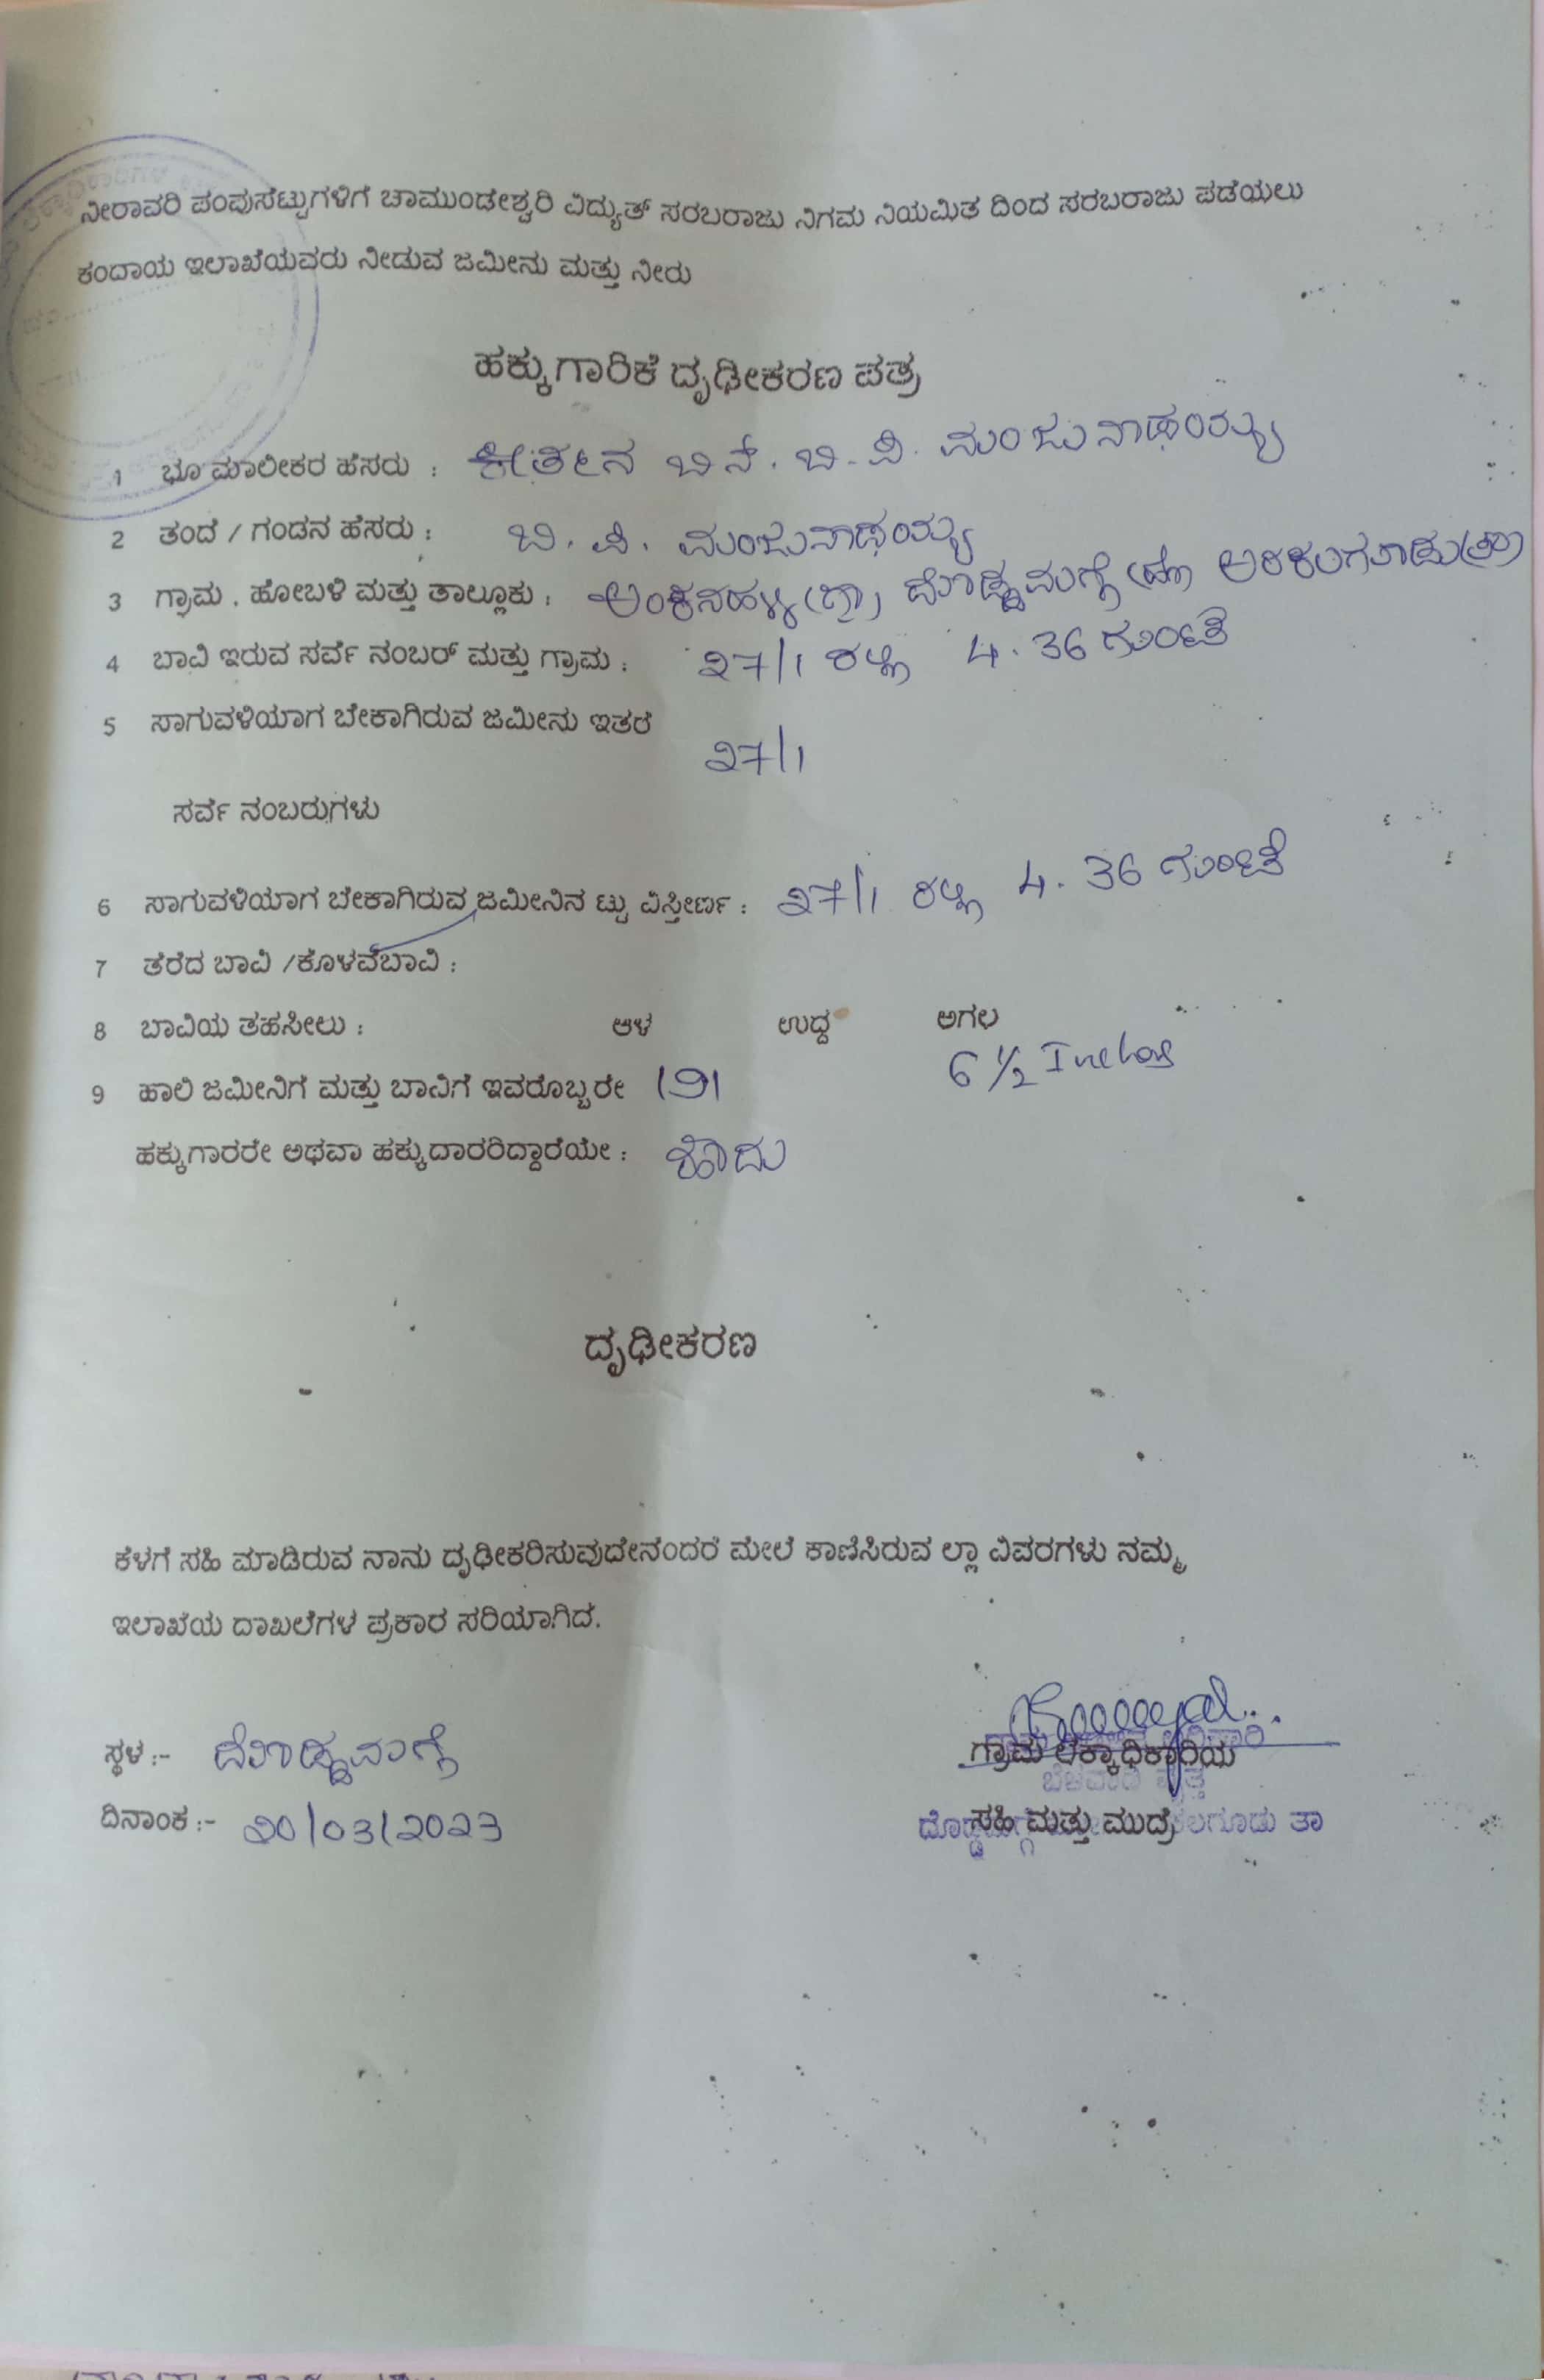 ನೀರಾವರಿ ಪಂಪುಸೆಟ್ಟುಗಳಿಗೆ ಚಾಮುಂಡೇಶ್ವರಿ ವಿದ್ಯುತ್ ಸರಬರಾಜು ನಿಗಮ ನಿಯಮಿತ ದಿಂದ ಸರಬರಾಜು ಪಡೆಯಲು
ಕಂದಾಯ ಇಲಾಖೆಯವರು ನೀಡುವ ಜಮೀನು ಮತ್ತು ನೀರು
ಹಕ್ಕುಗಾರಿಕೆ ದೃಢೀಕರಣ ಪತ್ರ
1 ಭೂ ಮಾಲೀಕರ ಹೆಸರು : ಕೀರ್ತನ ಬಿನ್. ಬಿ. ವಿ. ಮಂಜುನಾಥಯ್ಯ
2 ತಂದೆ / ಗಂಡನ ಹೆಸರು : ಬಿ. ವಿ. ಮಂಜುನಾಥಯ್ಯ
3 ಗ್ರಾಮ . ಹೋಬಳಿ ಮತ್ತು ತಾಲ್ಲೂಕು : ಅಂಕನಹಳ್ಳಿ (ಗ್ರಾ) ದೊಡ್ಡಮಗ್ಗೆ (ಹೋ) ಅರಕಲಗೂಡು (ತಾ)
4 ಬಾವಿ ಇರುವ ಸರ್ವೆ ನಂಬರ್ ಮತ್ತು ಗ್ರಾಮ : 27/1 ರಲ್ಲಿ 4.36 ಗುಂಟೆ
5 ಸಾಗುವಳಿಯಾಗ ಬೇಕಾಗಿರುವ ಜಮೀನು ಇತರೆ
27/1
ಸರ್ವೆ ನಂಬರುಗಳು
6 ಸಾಗುವಳಿಯಾಗ ಬೇಕಾಗಿರುವ ಜಮೀನಿನ ಟ್ಟು ವಿಸ್ತೀರ್ಣ : 27/1 ರಲ್ಲಿ 4.36 ಗುಂಟೆ
7 ತೆರೆದ ಬಾವಿ /ಕೊಳವೆಬಾವಿ :
8 ಬಾವಿಯ ತಹಸೀಲು : ಆಳ ಉದ್ದ ಅಗಲ
6 1/2 Inches
9 ಹಾಲಿ ಜಮೀನಿಗೆ ಮತ್ತು ಬಾವಿಗೆ ಇವರೊಬ್ಬರೇ
ಹಕ್ಕುಗಾರರೇ ಅಥವಾ ಹಕ್ಕುದಾರರಿದ್ದಾರೆಯೇ : ಹೌದು
ದೃಢೀಕರಣ
ಕೆಳಗೆ ಸಹಿ ಮಾಡಿರುವ ನಾನು ದೃಢೀಕರಿಸುವುದೇನೆಂದರೆ ಮೇಲೆ ಕಾಣಿಸಿರುವ ಲ್ಲಾ ವಿವರಗಳು ನಮ್ಮ
ಇಲಾಖೆಯ ದಾಖಲೆಗಳ ಪ್ರಕಾರ ಸರಿಯಾಗಿದೆ.
ಸ್ಥಳ :- ದೊಡ್ಡಮಗ್ಗೆ
ಗ್ರಾಮ ಲೆಕ್ಕಾಧಿಕಾರಿಯ
ದಿನಾಂಕ :- 20/03/2023
ಸಹಿ ಮತ್ತು ಮುದ್ರೆ